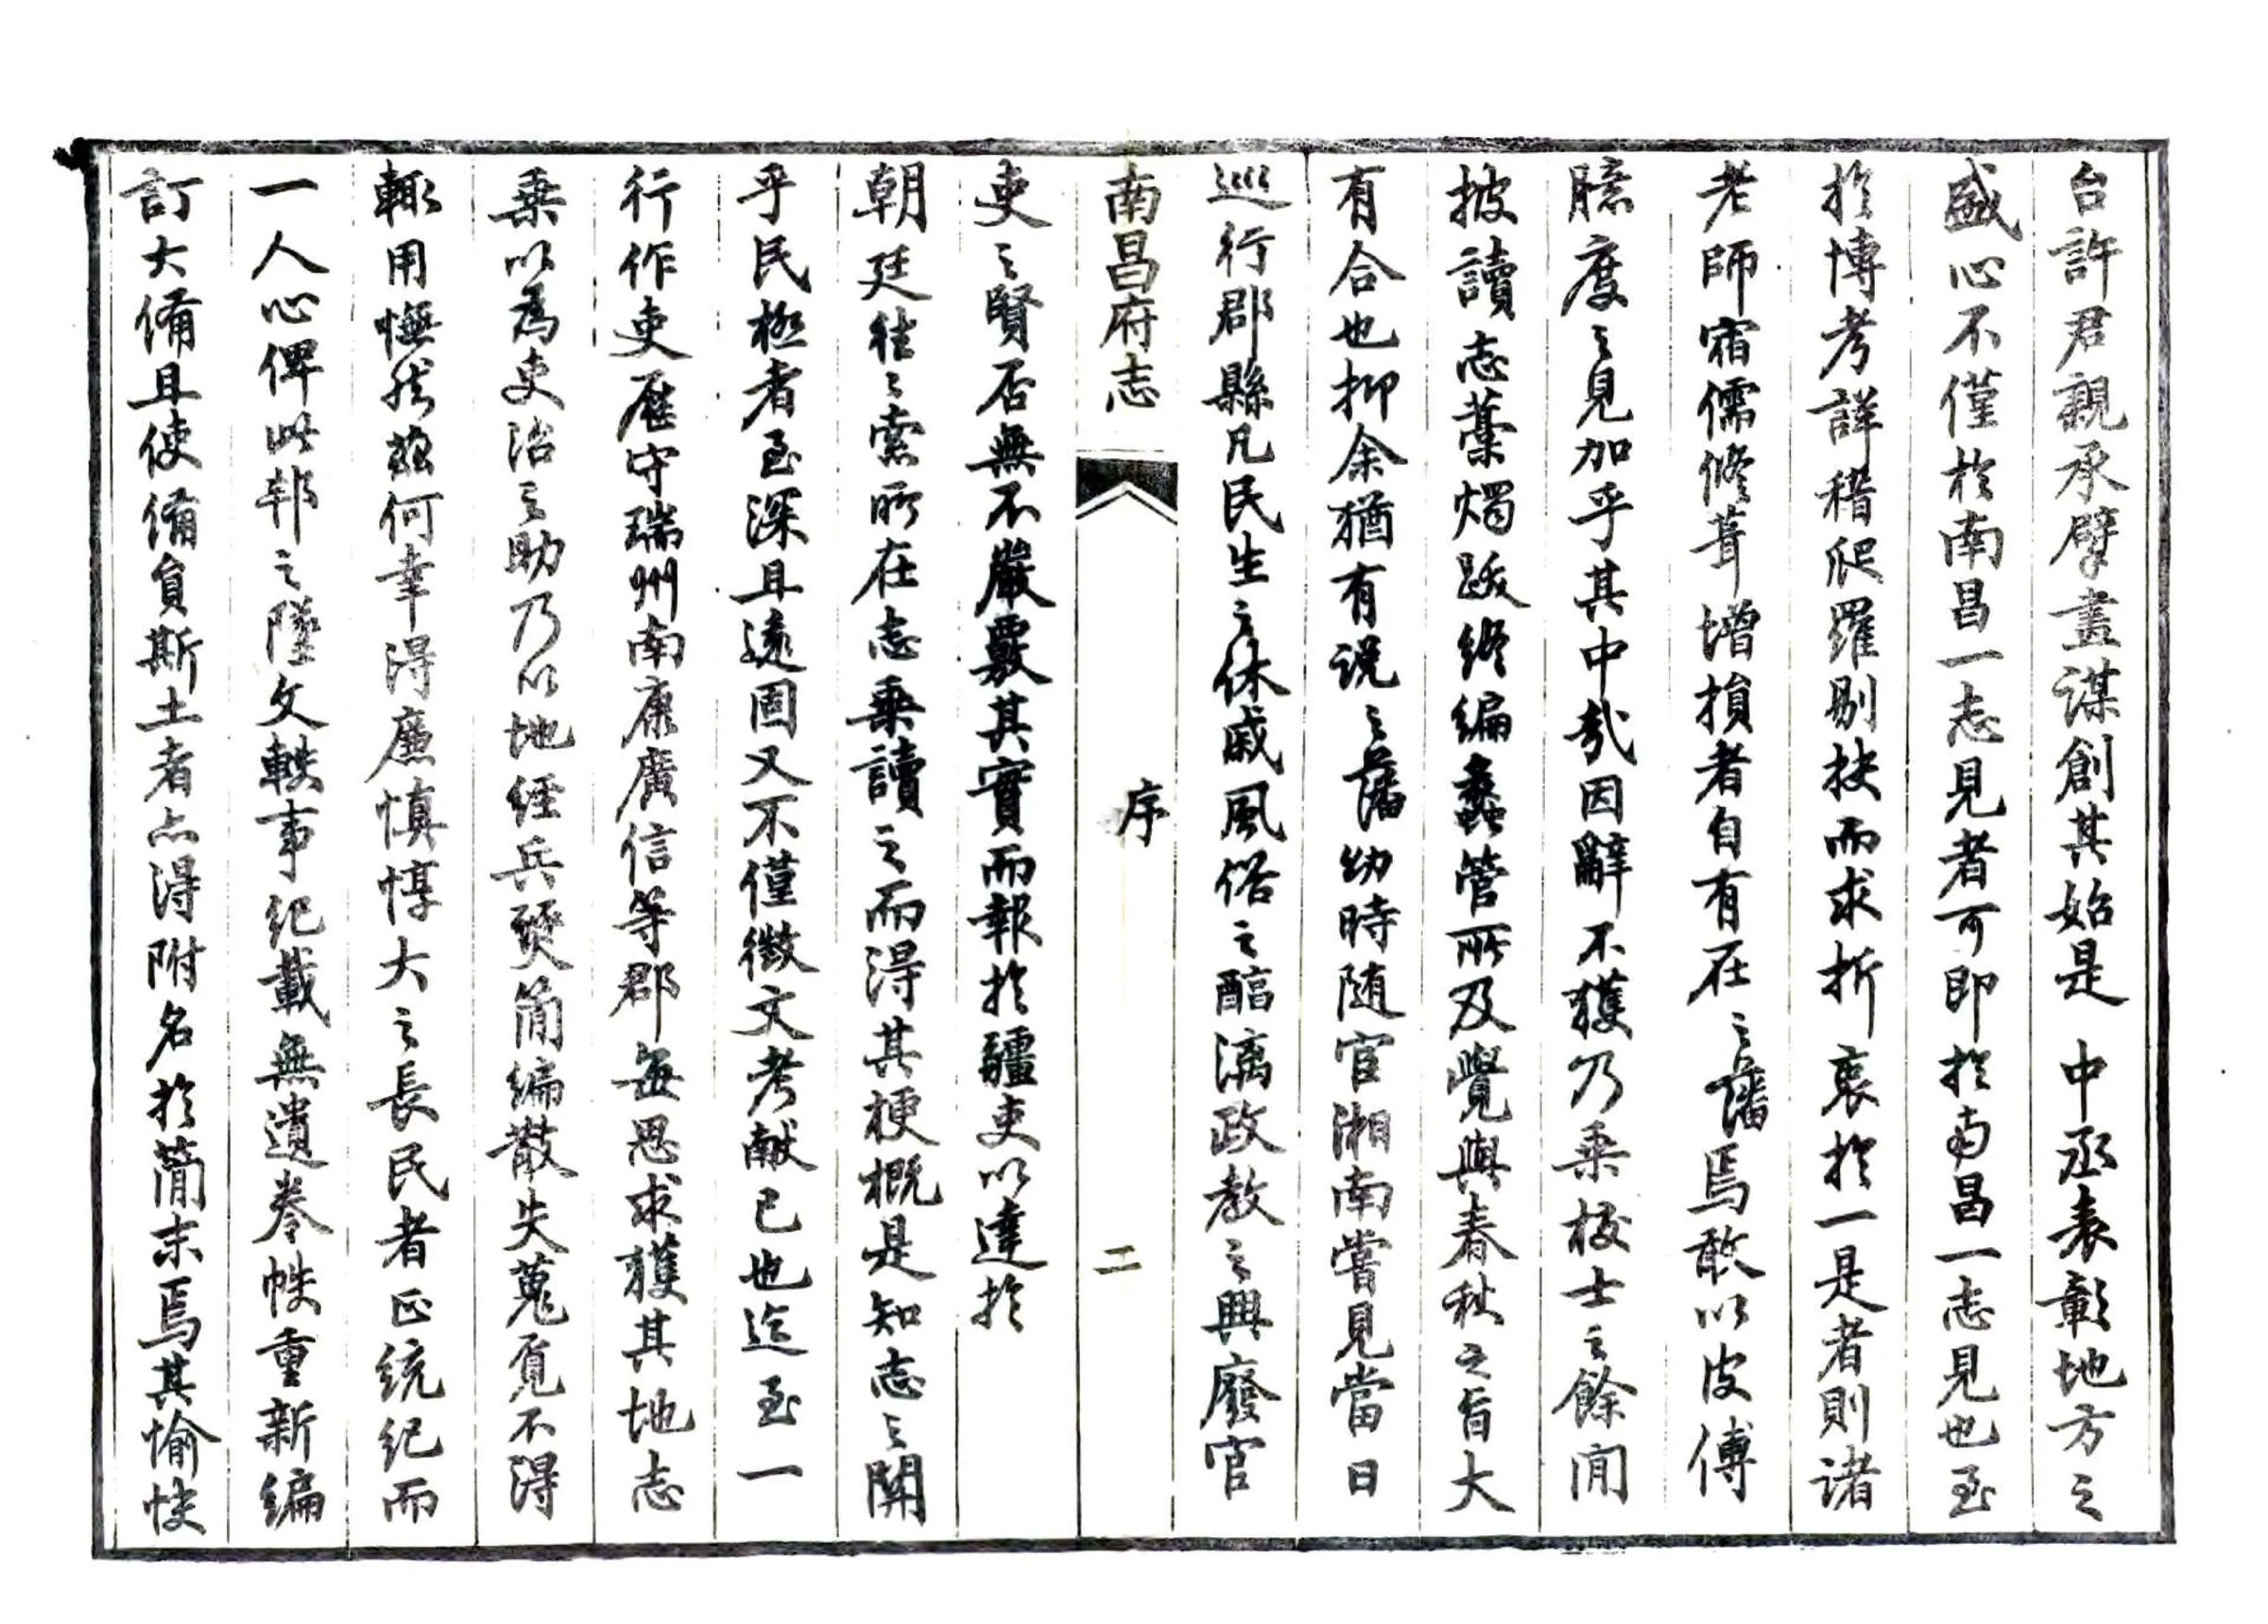 台許君親承擘畫謀創其始是 中丞表彰地方之
盛心不僅於南昌一志見者可即於南昌一志見也至
於博考詳稽爬羅剔抉而求折衷於一是者則諸
老師宿儒修葺增損者自有在之藩焉敢以皮傅
臆度之見加乎其中哉因辭不獲乃乘校士之餘閒
披讀志藁燭跋終編蠡管所及覺與春秋之旨大
有合也抑余猶有說之藩幼時随官湘南嘗見當日
巡行郡縣凡民生之休戚風俗之醕漓政教之興廢官
南昌府志 序 二
吏之賢否無不嚴覈其實而報於疆吏以達於
朝廷往之索所在志乘讀之而得其梗概是知志之關
乎民極者至深且遠固又不僅徵文考献已也迄至一
行作吏歷守瑞州南康廣信等郡每思求獲其地志
乘以為吏治之助乃以地經兵燹簡編散失蒐覓不得
輒用憮然茲何幸得廉慎惇大之長民者正統紀而
一人心俾此邦之墜文軼事紀載無遺卷帙重新編
訂大備且使備員斯土者亦得附名於簡末焉其愉快